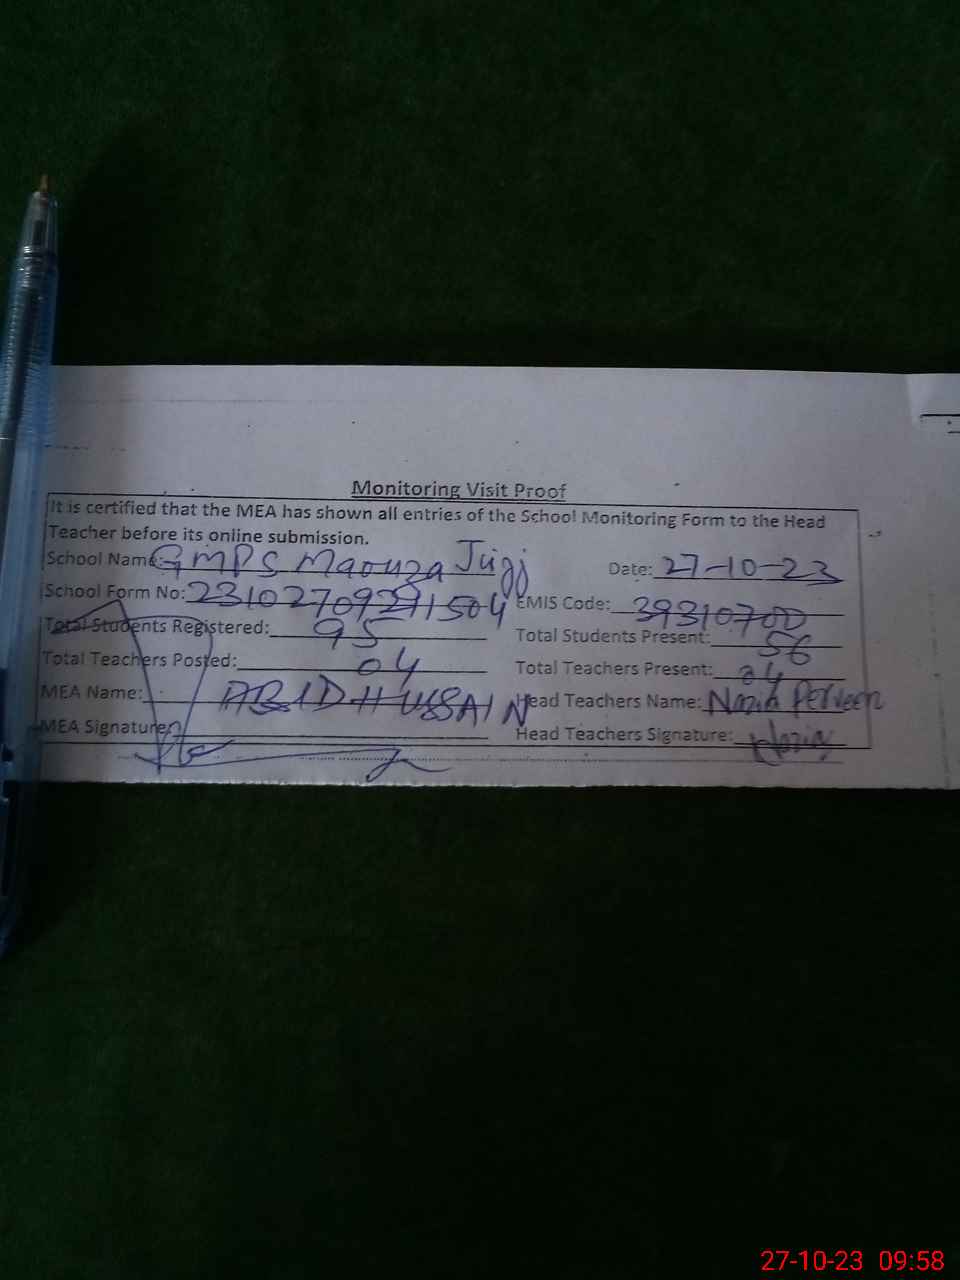 Monitoring Visit Proof
It is certified that the MEA has shown all entries of the School Monitoring Form to the Head
Teacher before its online submission.
School Name: GMPS Maouza Jugj Date: 27-10-23
School Form No: 2310270939310700 EMIS Code: 39310700
Total Students Registered: 95 Total Students Present: 56
Total Teachers Posted: 04 Total Teachers Present: 04
MEA Name: ABID HUSSAIN Head Teachers Name: Nazia Perveen
MEA Signature: Head Teachers Signature: Nazia
27-10-23 09:58